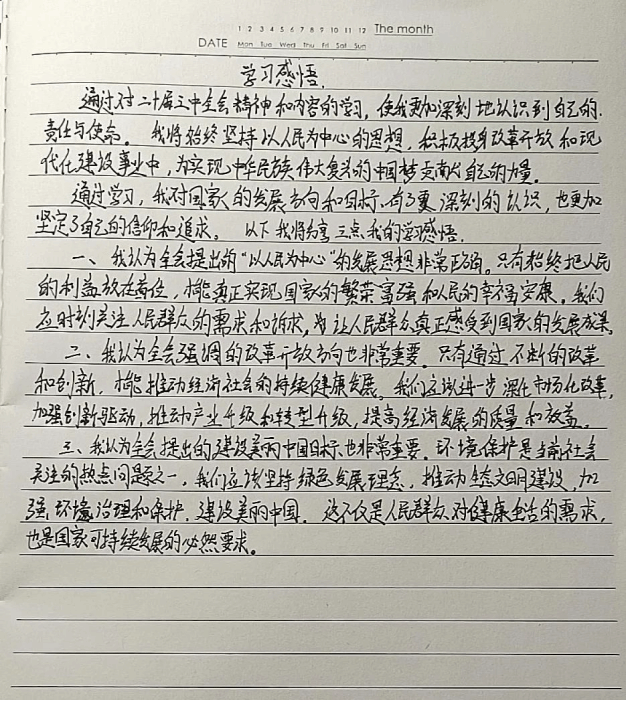 1 2 3 4 5 6 7 8 9 10 11 12 The month
DATE Mon Tue Wed Thu Fri Sat Sun
学习感悟.
通过对二十届三中全会精神和内容的学习，使我更加深刻地认识到自己的
责任与使命。我将始终坚持以人民为中心的思想，积极投身改革开放和现
代化建设事业中，为实现中华民族伟大复兴的中国梦贡献出自己的力量。
通过学习，我对国家的发展方向和目标有了更深刻的认识，也更加
坚定了自己的信仰和追求。以下我将分享三点我的学习感悟.
一、我认为全会提出的“以人民为中心”的发展思想非常正确。只有始终把人民
的利益放在首位，才能真正实现国家的繁荣富强和人民的幸福安康。我们
应时刻关注人民群众的需求和诉求，为让人民群众真正感受到国家的发展成果。
二、我认为全会强调的改革开放方向也非常重要。只有通过不断的改革
和创新，才能推动经济社会的持续健康发展。我们应该进一步深化市场化改革，
加强创新驱动，推动产业升级和转型升级，提高经济发展的质量和效益。
三、我认为全会提出的建设美丽中国目标也非常重要。环境保护是当前社会
关注的热点问题之一，我们应该坚持绿色发展理念，推动生态文明建设，加
强环境治理和保护，建设美丽中国。这不仅是人民群众对健康生活的需求，
也是国家可持续发展的必然要求。